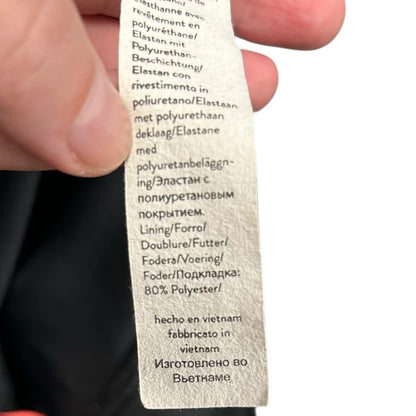 élasthanne avec
revêtement en
polyuréthane/
Elastan mit
Polyurethan-
Beschichtung/
Elastan con
rivestimento in
poliuretano/Elastaan
met polyurethaan
deklaag/Elastane
med
polyuretanbeläggn-
ing/Эластан с
полиуретановым
покрытием.
Lining/Forro/
Doublure/Futter/
Fodera/Voering/
Foder/Подкладка:
80% Polyester/
hecho en vietnam
fabbricato in
vietnam
Изготовлено во
Вьетнаме